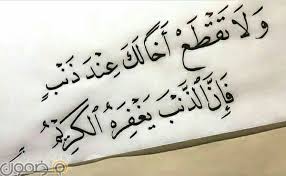 وَلَا تَقْطَعْ أَخًا لَكَ عِنْدَ ذَنْبٍ
فَإِنَّ الذَّنْبَ يَغْفِرُهُ الْكَرِيْمُ